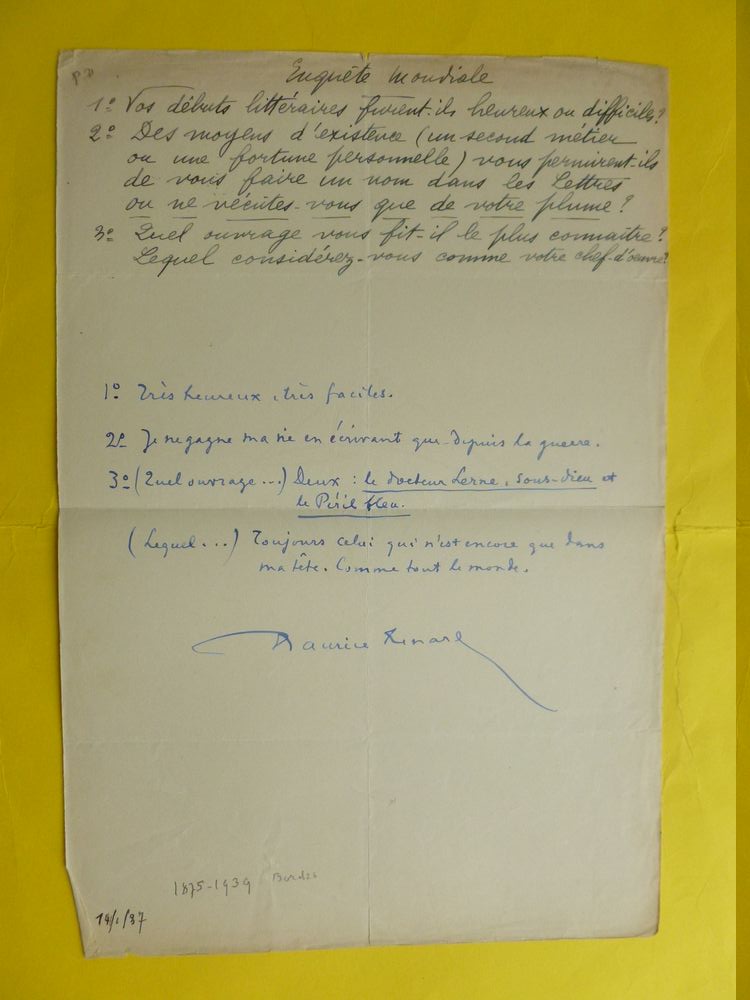 Enquête Mondiale
1º Vos débuts littéraires furent-ils heureux ou difficiles?
2º Des moyens d'existence (un second métier
ou une fortune personnelle) vous permirent-ils
de vous faire un nom dans les Lettres
ou ne vécûtes-vous que de votre plume?
3º Quel ouvrage vous fit-il le plus connaître?
Lequel considérez-vous comme votre chef-d'œuvre?
1º Très heureux, très faciles.
2º Je ne gagne ma vie en écrivant que depuis la guerre.
3º (Quel ouvrage...) Deux : le docteur Lerne, sous-dieu et
le Péril bleu.
(Lequel...) Toujours celui qui n'est encore que dans
ma tête. Comme tout le monde.
Maurice Renard
1875-1939
19/1/37